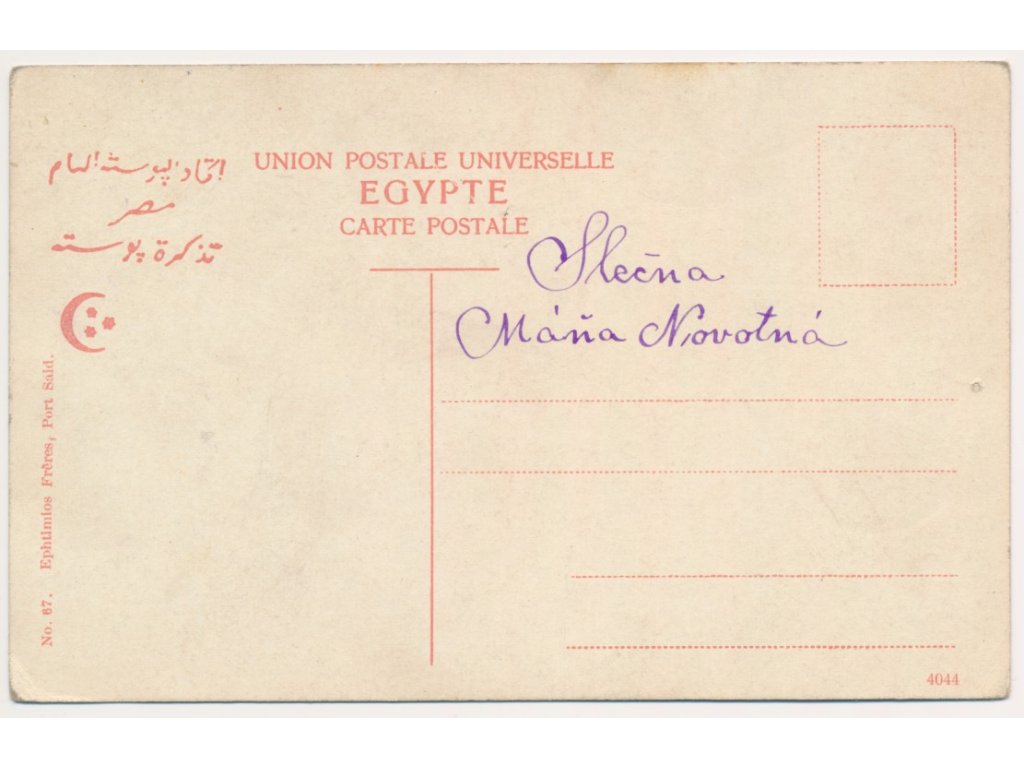 اتحاد البوسته العام
مصر
تذكرة بوسته
UNION POSTALE UNIVERSELLE
EGYPTE
CARTE POSTALE
Slečna
Máňa Novotná
No. 67. Ephtimios Frères, Port Said.
4044